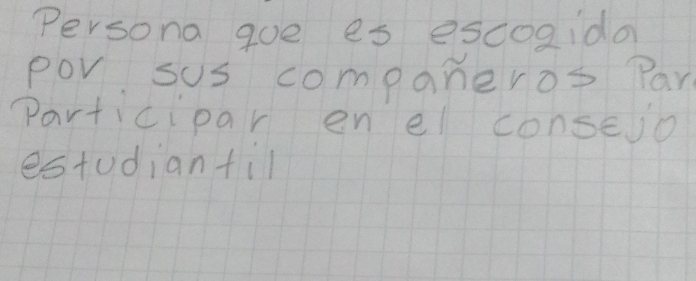 Persona que es escogida
por sus compañeros Par
Participar en el consejo
estudiantil